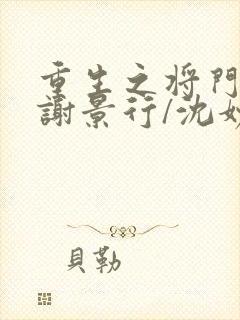 重生之将門
謝景行/沈
貝勒